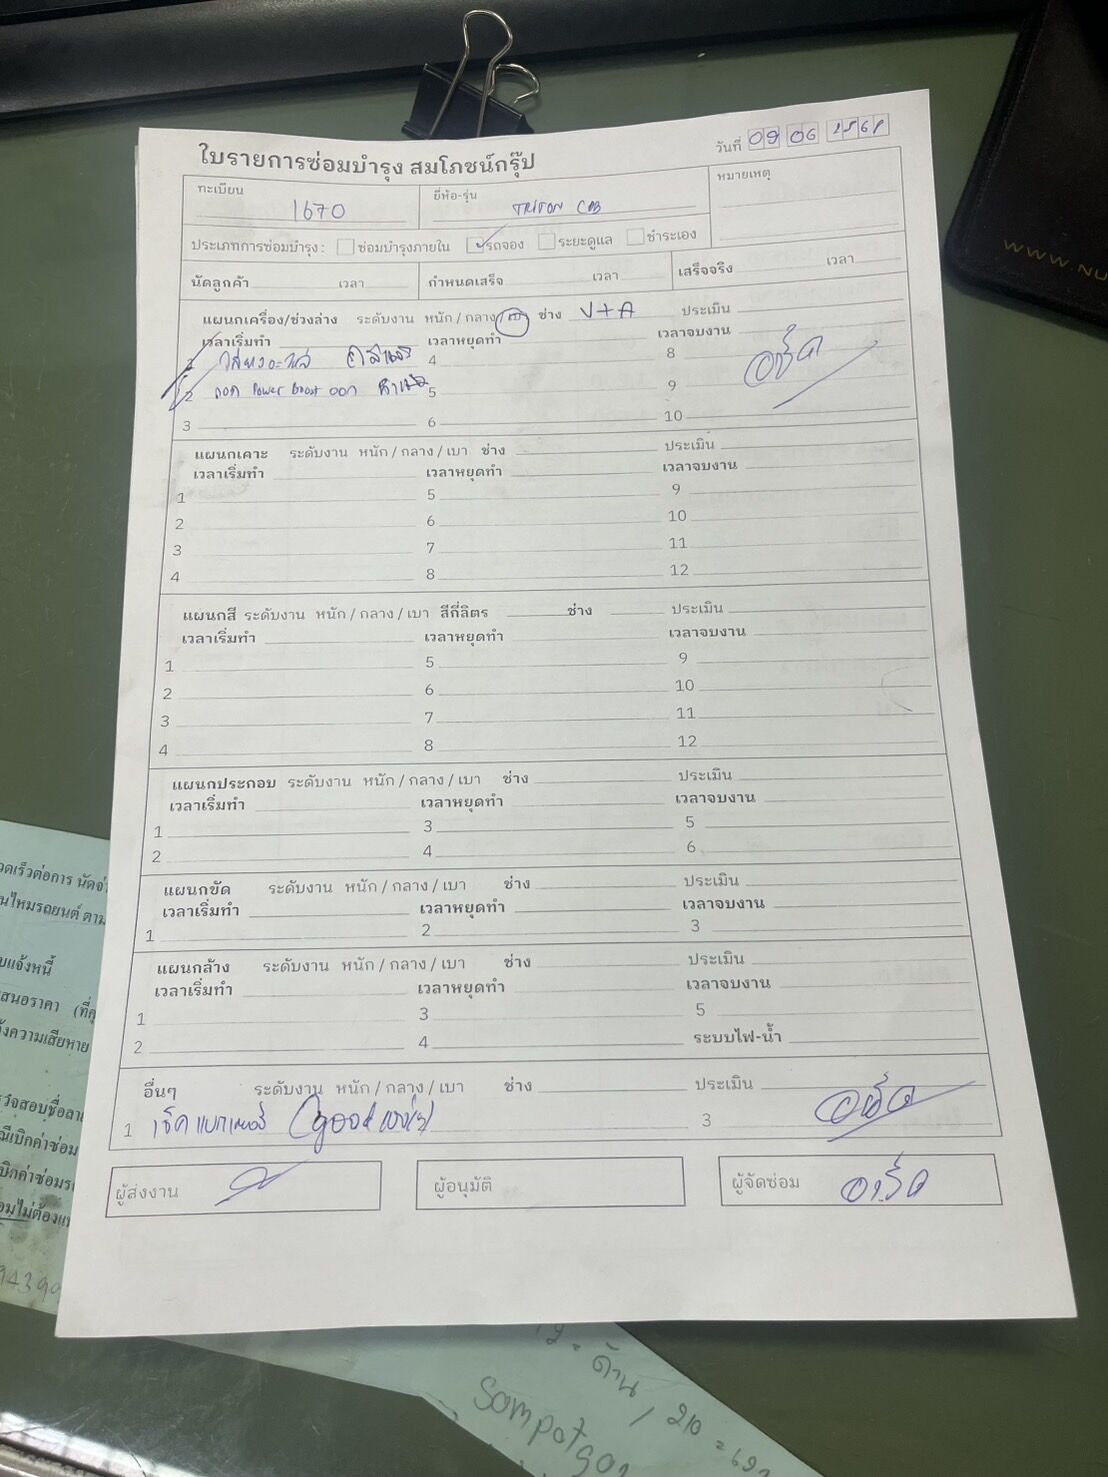 ใบรายการซ่อมบำรุง สมโภชน์กรุ๊ป
วันที่ 09 06 2568
ทะเบียน 1670
ยี่ห้อ-รุ่น TRITON CAB
หมายเหตุ
ประเภทการซ่อมบำรุง : ซ่อมบำรุงภายใน รถจอง ระยะดูแล ชำระเอง
นัดลูกค้า เวลา กำหนดเสร็จ เวลา เสร็จจริง เวลา
แผนกเครื่อง/ช่วงล่าง ระดับงาน หนัก / กลาง / เบา ช่าง V+A ประเมิน
เวลาเริ่มทำ เวลาหยุดทำ เวลาจบงาน
1 4 8
2 ถอด Power Boost ออก 5 9
3 6 10
แผนกเคาะ ระดับงาน หนัก / กลาง / เบา ช่าง ประเมิน
เวลาเริ่มทำ เวลาหยุดทำ เวลาจบงาน
1 5 9
2 6 10
3 7 11
4 8 12
แผนกสี ระดับงาน หนัก / กลาง / เบา สีกี่ลิตร ช่าง ประเมิน
เวลาเริ่มทำ เวลาหยุดทำ เวลาจบงาน
1 5 9
2 6 10
3 7 11
4 8 12
แผนกประกอบ ระดับงาน หนัก / กลาง / เบา ช่าง ประเมิน
เวลาเริ่มทำ เวลาหยุดทำ เวลาจบงาน
1 3 5
2 4 6
แผนกขัด ระดับงาน หนัก / กลาง / เบา ช่าง ประเมิน
เวลาเริ่มทำ เวลาหยุดทำ เวลาจบงาน
1 2 3
แผนกล้าง ระดับงาน หนัก / กลาง / เบา ช่าง ประเมิน
เวลาเริ่มทำ เวลาหยุดทำ เวลาจบงาน
1 3 5
2 4 ระบบไฟ-น้ำ
อื่นๆ ระดับงาน หนัก / กลาง / เบา ช่าง ประเมิน
1 เช็คแบตเตอรี่ 3
ผู้ส่งงาน ผู้อนุมัติ ผู้จัดซ่อม
WWW.NU
วดเร็วต่อการ นัดจ่
นไหมรถยนต์ ตาม
บแจ้งหนี้
สนอราคา (ที่คุ
ังความเสียหาย
รวจสอบชื่อลา
ณีเบิกค่าซ่อม
บิกค่าซ่อมร
อมไม่ต้องแ
94399
12 - ด้าน / 210 = 692